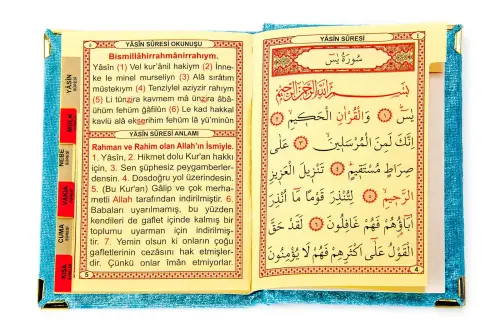 YÂSİN SÛRESİ OKUNUŞU
Bismillâhirrahmânirrahıym.
Yâsîn (1) Vel kur'ânil hakiym (2) İnne-
ke le minel murseliyn (3) Alâ sırâtım
müstekıym (4) Tenziylel aziyzir rahıym
(5) Li tünzira kavmem mâ ünzira âbâ-
ühüm fehüm ğâfilûn (6) Le kad hakkal
kavlü alâ ekserihim fehüm lâ yü'minûn
YÂSİN SÛRESİ ANLAMI
Rahman ve Rahim olan Allah'ın İsmiyle.
1. Yâsîn, 2. Hikmet dolu Kur'an hakkı
için, 3. Sen şüphesiz peygamberler-
densin. 4. Dosdoğru yol üzerindesin.
5. (Bu Kur'an) Gâlip ve çok merha-
metli Allah tarafından indirilmiştir. 6.
Babaları uyarılmamış, bu yüzden
kendileri de gaflet içinde kalmış bir
toplumu uyarman için indirilmiş-
tir. 7. Yemin olsun ki onların çoğu
gafletlerinin cezasını hak etmişler-
dir. Çünkü onlar îman etmiyorlar.
5
YÂSİN
SÛRESİ
MÜLK
NEBE
SÛRESİ
VAKIA
CUMA
SÛRESİ
KISA
YÂSİN SÛRESİ
سُورَةُ يٰسٓ
بِسْمِ اللّٰهِ الرَّحْمٰنِ الرَّحِيمِ
يٰسٓ ﴿١﴾ وَالْقُرْاٰنِ الْحَكِيمِ ﴿٢﴾
اِنَّكَ لَمِنَ الْمُرْسَلِينَ ﴿٣﴾ عَلٰى
صِرَاطٍ مُسْتَقِيمٍ ﴿٤﴾ تَنْزِيلَ الْعَزِيزِ
الرَّحِيمِ ﴿٥﴾ لِتُنْذِرَ قَوْمًا مَٓا اُنْذِرَ
اٰبَٓاؤُ۬هُمْ فَهُمْ غَافِلُونَ ﴿٦﴾ لَقَدْ حَقَّ
الْقَوْلُ عَلٰٓى اَكْثَرِهِمْ فَهُمْ لَا يُؤْمِنُونَ
4